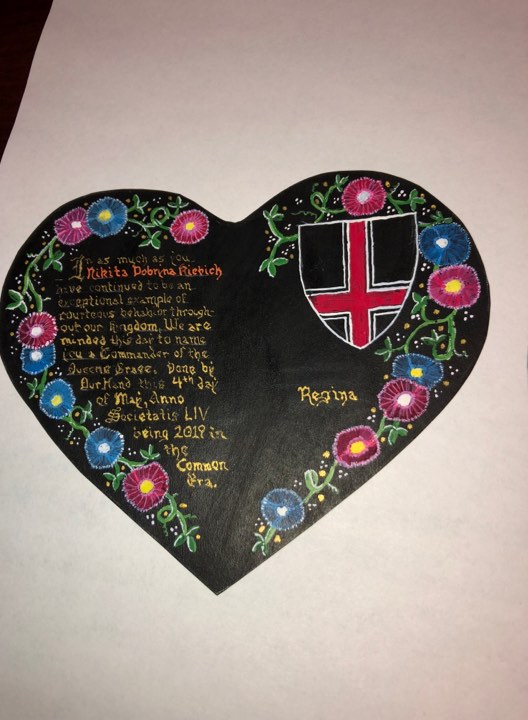 In as much as you
Nikita Dobryna Rickich
have continued to be an
exceptional example of
courteous behavior through
out our kingdom, We are
minded this day to name
you a Commander of the
Queens Grace. Done by
Our Hand this 4th day
of May, Anno
Societatis LIV
being 2019 in
the
Common
Era.
Regina